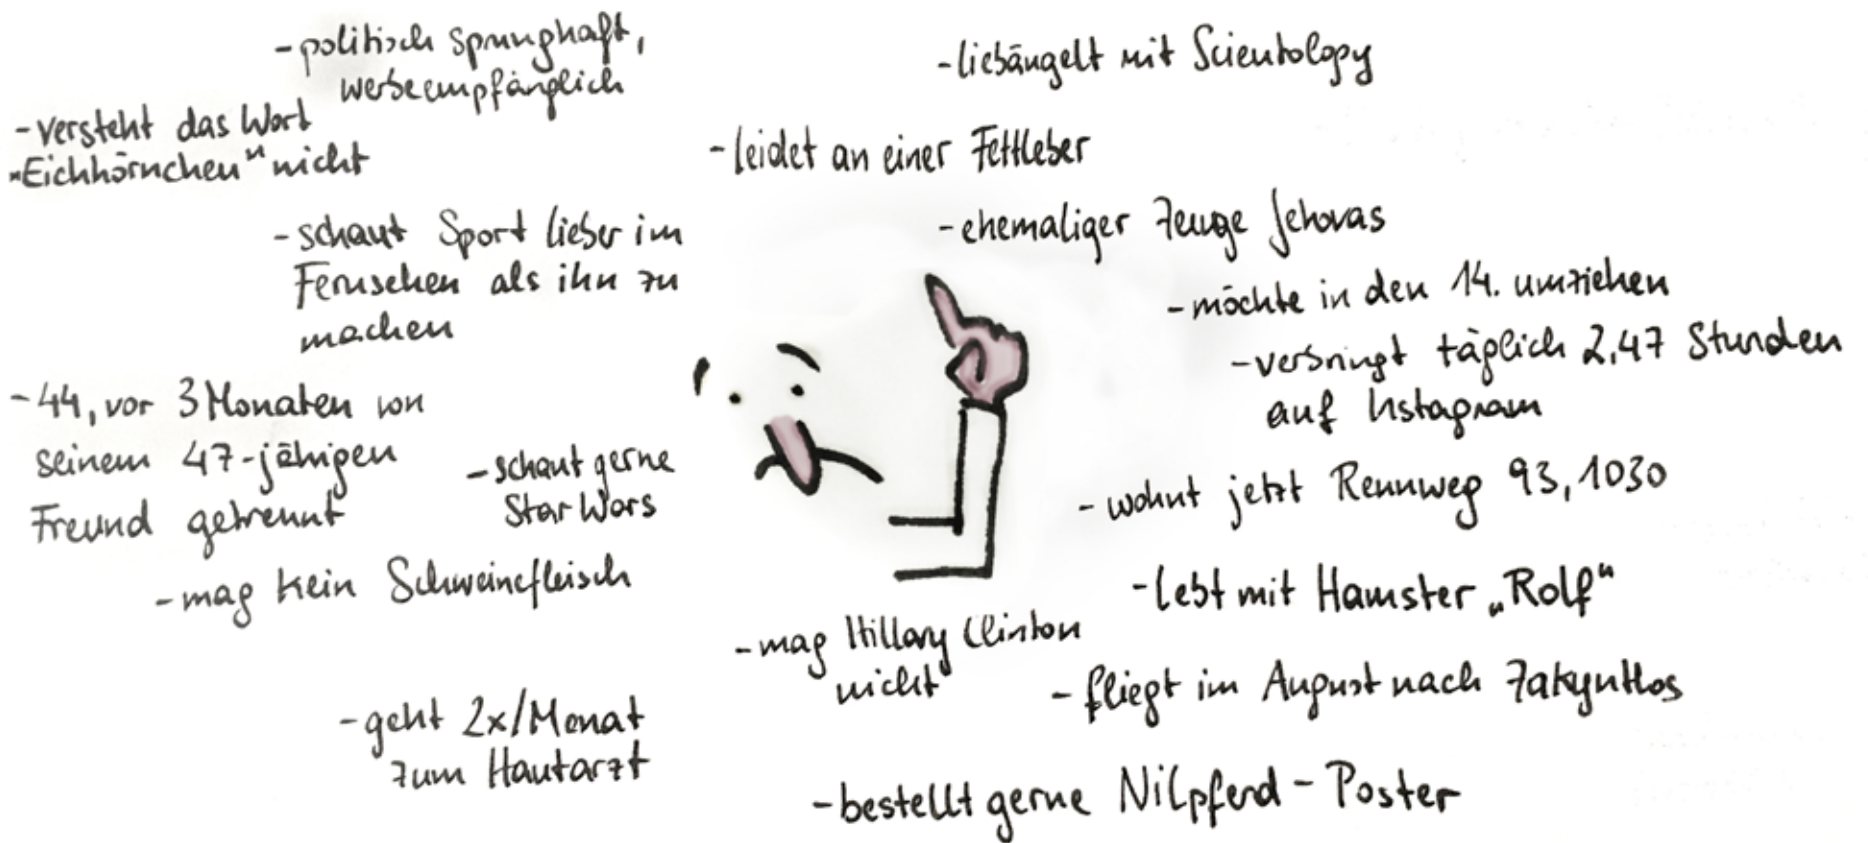 - politisch sprunghaft,
werbeempfänglich
- versteht das Wort
"Eichhörnchen" nicht
- schaut Sport lieber im
Fernsehen als ihn zu
machen
- 44, vor 3 Monaten von
seinem 47-jährigen
Freund getrennt
- schaut gerne
Star Wars
- mag kein Schweinefleisch
- geht 2x/Monat
zum Hautarzt
- liebäugelt mit Scientology
- leidet an einer Fettleber
- ehemaliger Zeuge Jehovas
- möchte in den 14. umziehen
- verbringt täglich 2,47 Stunden
auf Instagram
- wohnt jetzt Rennweg 93, 1030
- lebt mit Hamster „Rolf“
- mag Hillary Clinton
nicht
- fliegt im August nach Zakynthos
- bestellt gerne Nilpferd-Poster